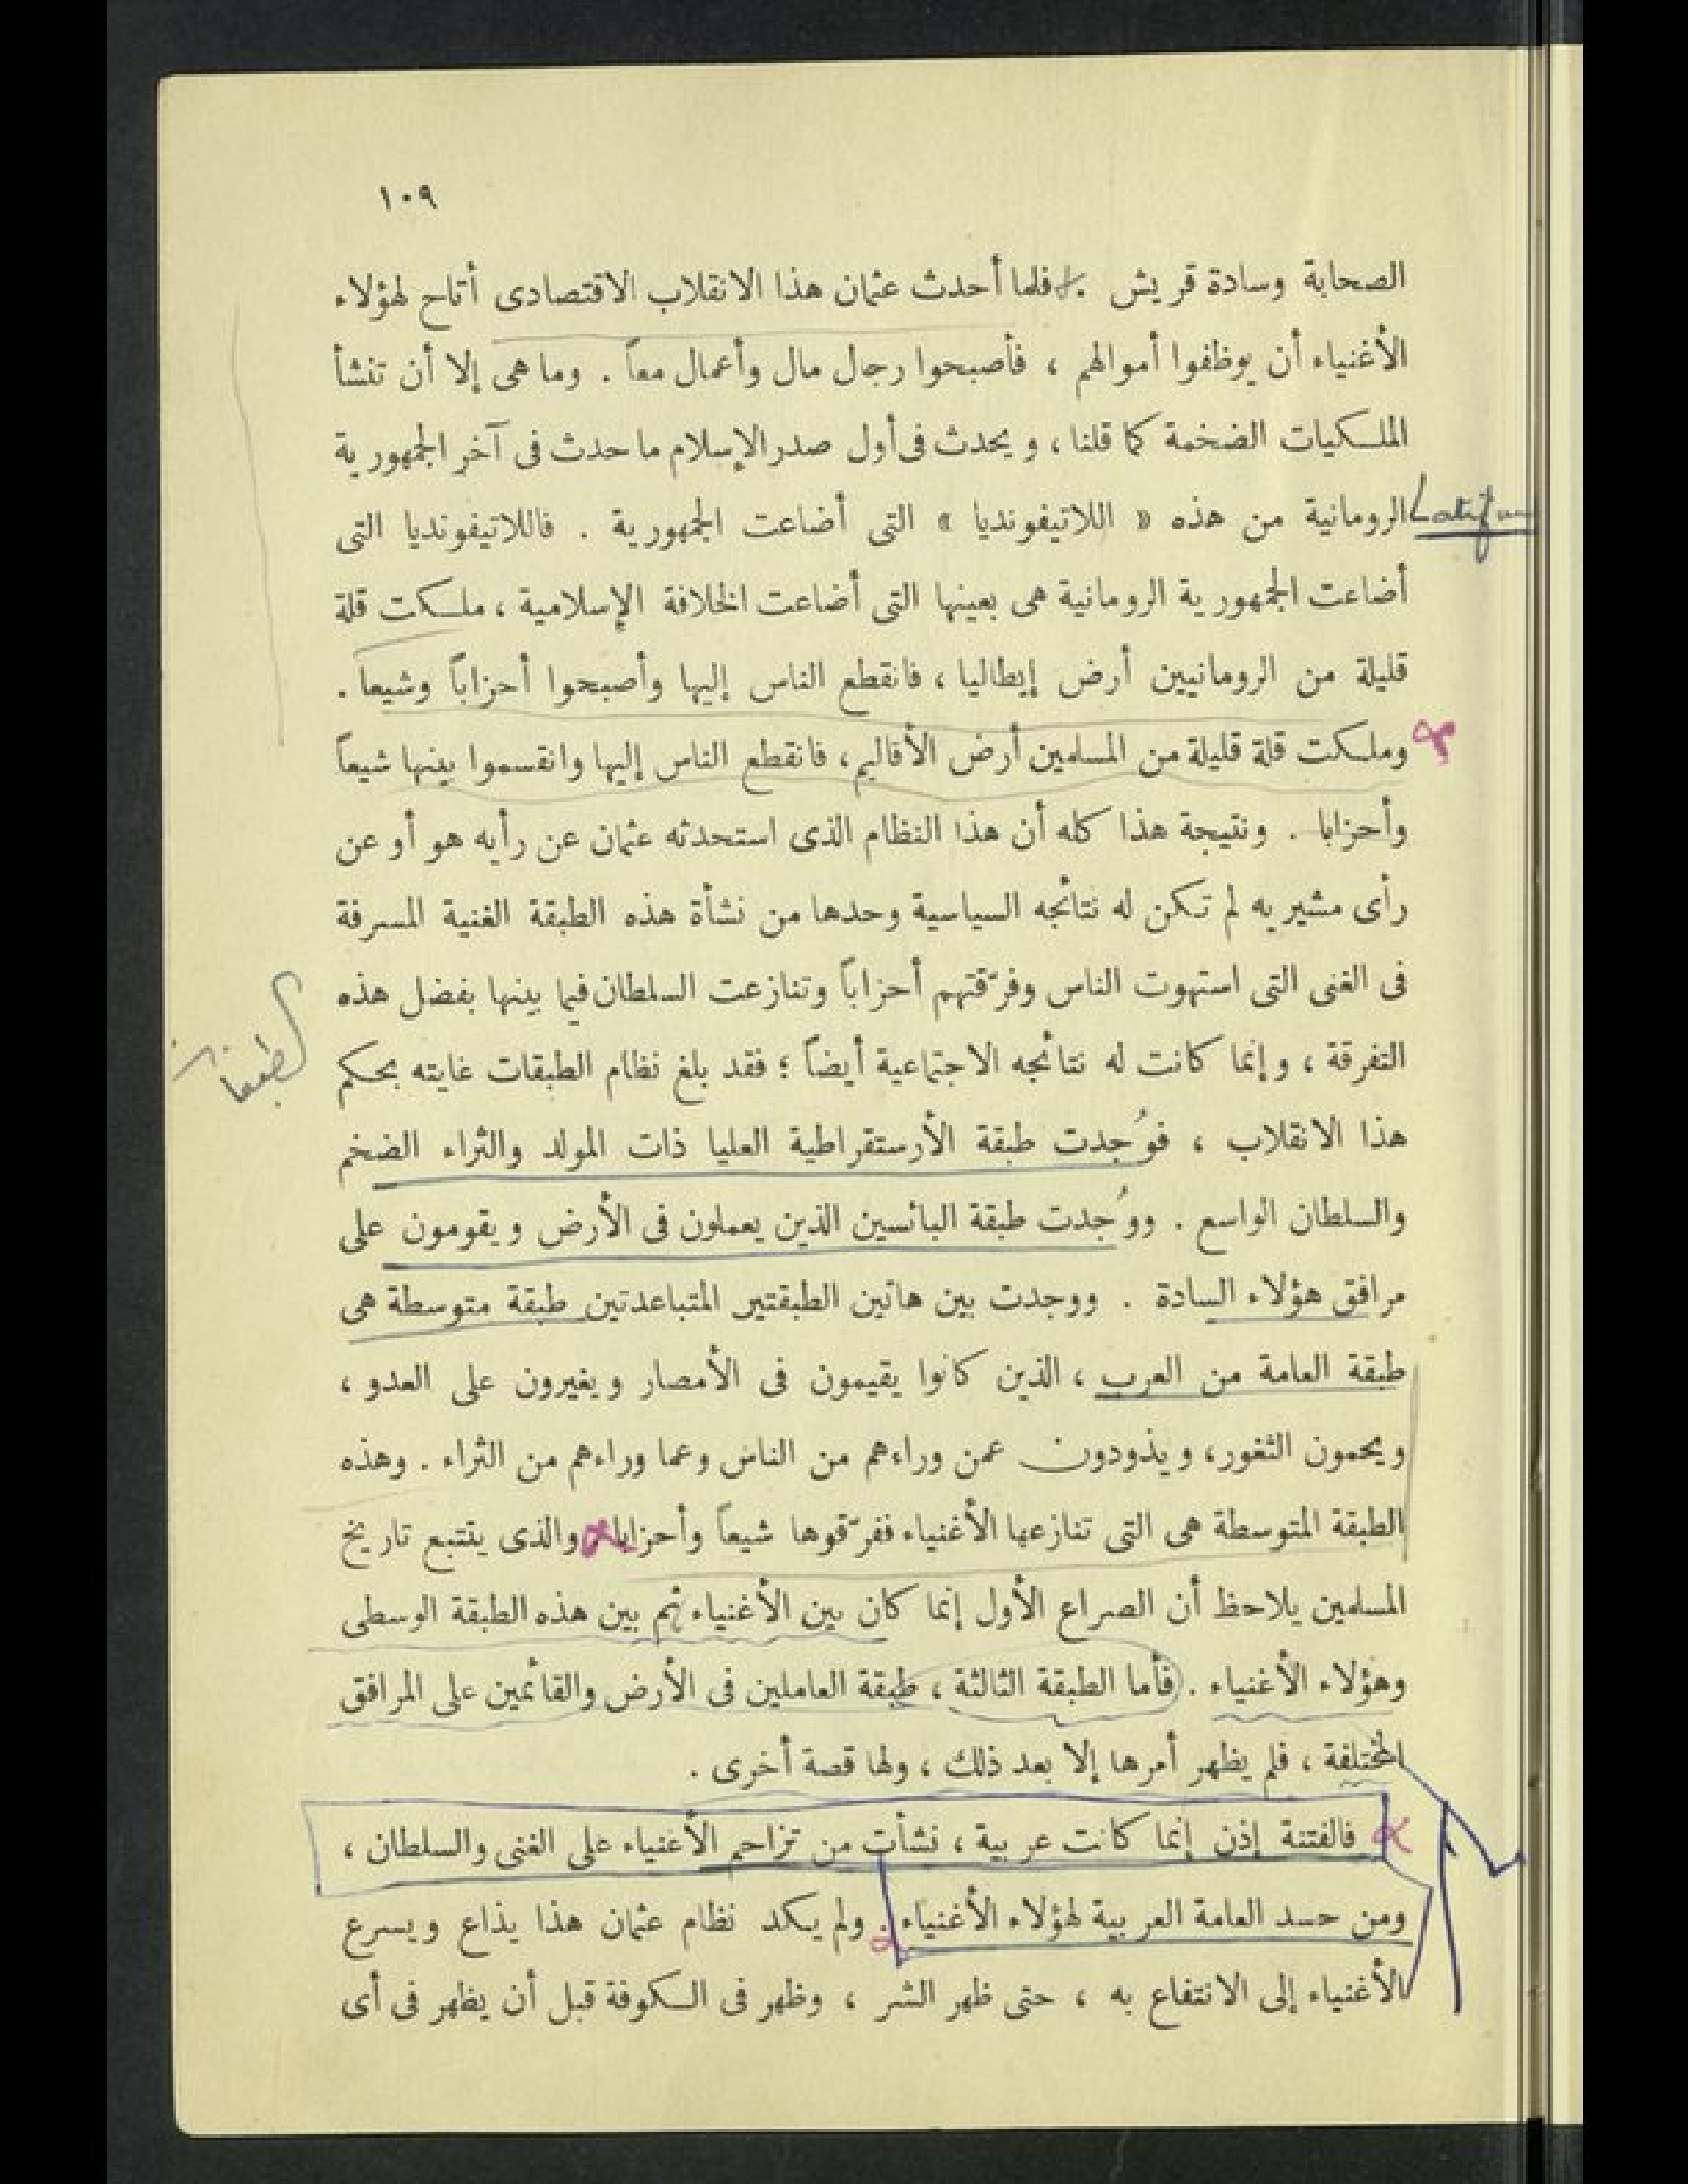 ١٠٩
الصحابة وسادة قريش . فلما أحدث عثمان هذا الانقلاب الاقتصادى أتاح لهؤلاء
الأغنياء أن يوظفوا أموالهم ، فأصبحوا رجال مال وأعمال معاً . وما هى إلا أن تنشأ
الملكيات الضخمة كما قلنا ، ويحدث فى أول صدر الإسلام ما حدث فى آخر الجمهورية
الرومانية من هذه « اللاتيفونديا » التى أضاعت الجمهورية . فاللاتيفونديا التى
أضاعت الجمهورية الرومانية هى بعينها التى أضاعت الخلافة الإسلامية ، ملكت قلة
قليلة من الرومانيين أرض إيطاليا ، فانقطع الناس إليها وأصبحوا أحزاباً وشيعا .
وملكت قلة قليلة من المسلمين أرض الأقاليم ، فانقطع الناس إليها وانقسموا بينها شيعاً
وأحزابا . ونتيجة هذا كله أن هذا النظام الذى استحدثه عثمان عن رأيه هو أو عن
رأى مشيريه لم تكن له نتائجه السياسية وحدها من نشأة هذه الطبقة الغنية المسرفة
فى الغنى التى استهوت الناس وفرّقتهم أحزاباً وتنازعت السلطان فيما بينها بفضل هذه
التفرقة ، وإنما كانت له نتائجه الاجتماعية أيضاً ؛ فقد بلغ نظام الطبقات غايته بحكم
هذا الانقلاب ، فوُجدت طبقة الأرستقراطية العليا ذات المولد والثراء الضخم
والسلطان الواسع . ووُجدت طبقة البائسين الذين يعملون فى الأرض ويقومون على
مرافق هؤلاء السادة . ووجدت بين هاتين الطبقتين المتباعدتين طبقة متوسطة هى
طبقة العامة من العرب ، الذين كانوا يقيمون فى الأمصار ويغيرون على العدو ،
ويحمون الثغور ، ويذودون عمن وراءهم من الناس وعما وراءهم من الثراء . وهذه
الطبقة المتوسطة هى التى تنازعها الأغنياء ففرّقوها شيعاً وأحزابا والذى يتتبع تاريخ
المسلمين يلاحظ أن الصراع الأول إنما كان بين الأغنياء ثم بين هذه الطبقة الوسطى
وهؤلاء الأغنياء . فأما الطبقة الثالثة ، طبقة العاملين فى الأرض والقائمين على المرافق
المختلفة ، فلم يظهر أمرها إلا بعد ذلك ، ولها قصة أخرى .
فالفتنة إذن إنما كانت عربية ، نشأت من تزاحم الأغنياء على الغنى والسلطان ،
ومن حسد العامة العربية لهؤلاء الأغنياء . ولم يكد نظام عثمان هذا يذاع ويسرع
الأغنياء إلى الانتفاع به ، حتى ظهر الشر ، وظهر فى الكوفة قبل أن يظهر فى أى